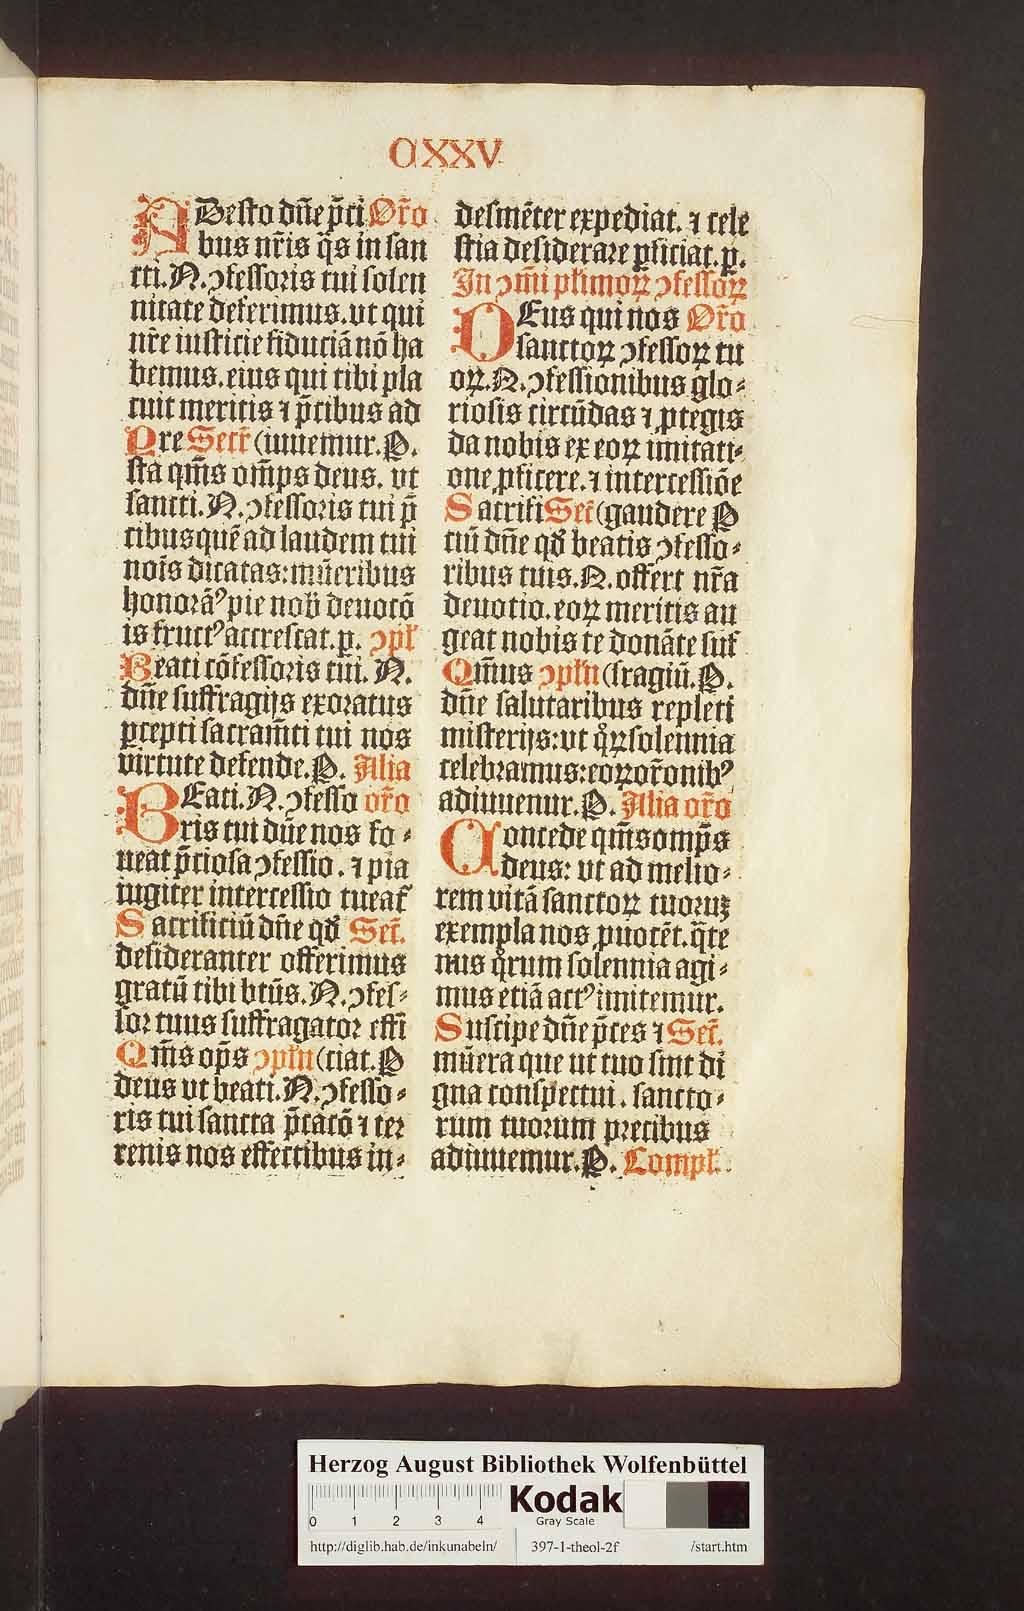 CXXV
ADesto dn̄e p̄ci Or̄o
bus nr̄is q̄s in san
cti. N. ↄfessoris tui solen
nitate deferimus. vt qui
nr̄e iusticie fiduciā nō ha
bemus. eius qui tibi pla
cuit meritis ⁊ p̄cibus ad
Pre Secr̄ (iuuemur. P.
sta qm̄s om̄ps deus. vt
sancti. N. ↄfessoris tui p̄
cibus quē ad laudem tui
noīs dicatas: mūeribus
honorāꝰ pie nob̄ deuocō
is fructꝰ accrescat. p. ↄpl̄
Beati cōfessoris tui. N.
dn̄e suffragijs exoratus
ꝑcepti sacram̄ti tui nos
virtute defende. P. Alia
BEati. N. ↄfesso or̄o
ris tui dn̄e nos fo-
ueat p̄ciosa ↄfessio. ⁊ pia
iugiter intercessio tueat̄
Sacrificiū dn̄e qd̄ Sec̄.
desideranter offerimus
gratū tibi btūs. N. ↄfes-
sor tuus suffragator effi
Qm̄s op̄s ↄpl̄n (ciat. P
deus vt beati. N. ↄfesso-
ris tui sancta p̄catō ⁊ ter
renis nos effectibus in-
desinēter expediat. ⁊ cele
stia desiderare ꝑficiat. p.
In ↄm̄i pl̄imoꝝ ↄfessoꝝ
DEus qui nos Or̄o
sanctoꝝ ↄfessoꝝ tu
oꝝ. N. ↄfessionibus glo-
riosis circūdas ⁊ ꝓtegis
da nobis ex eoꝝ imitati-
one ꝓficere. ⁊ intercessiōe
Sacrifi Sec̄ (gaudere P
ciū dn̄e qd̄ beatis ↄfesso-
ribus tuis. N. offert nr̄a
deuotio. eoꝝ meritis au
geat nobis te donāte suf
Qm̄us ↄpl̄n (fragiū. P.
dn̄e salutaribus repleti
misterijs: vt qͦꝝ solennia
celebramus: eoꝝ or̄onibꝰ
adiuuemur. P. Alia or̄o
Concede qm̄s omp̄s
deus: vt ad melio-
rem vitā sanctoꝝ tuoruꝫ
exempla nos ꝓuocēt. q̄te
nus qͦrum solennia agi-
mus etiā actꝰ imitemur.
Suscipe dn̄e p̄ces ⁊ Sec̄.
mūera que ut tuo sint di
gna conspectui. sancto-
rum tuorum precibus
adiuuemur. P. Compl̄.
Herzog August Bibliothek Wolfenbüttel
0 1 2 3 4
Kodak
Gray Scale
http://diglib.hab.de/inkunabeln/ 397-1-theol-2f /start.htm